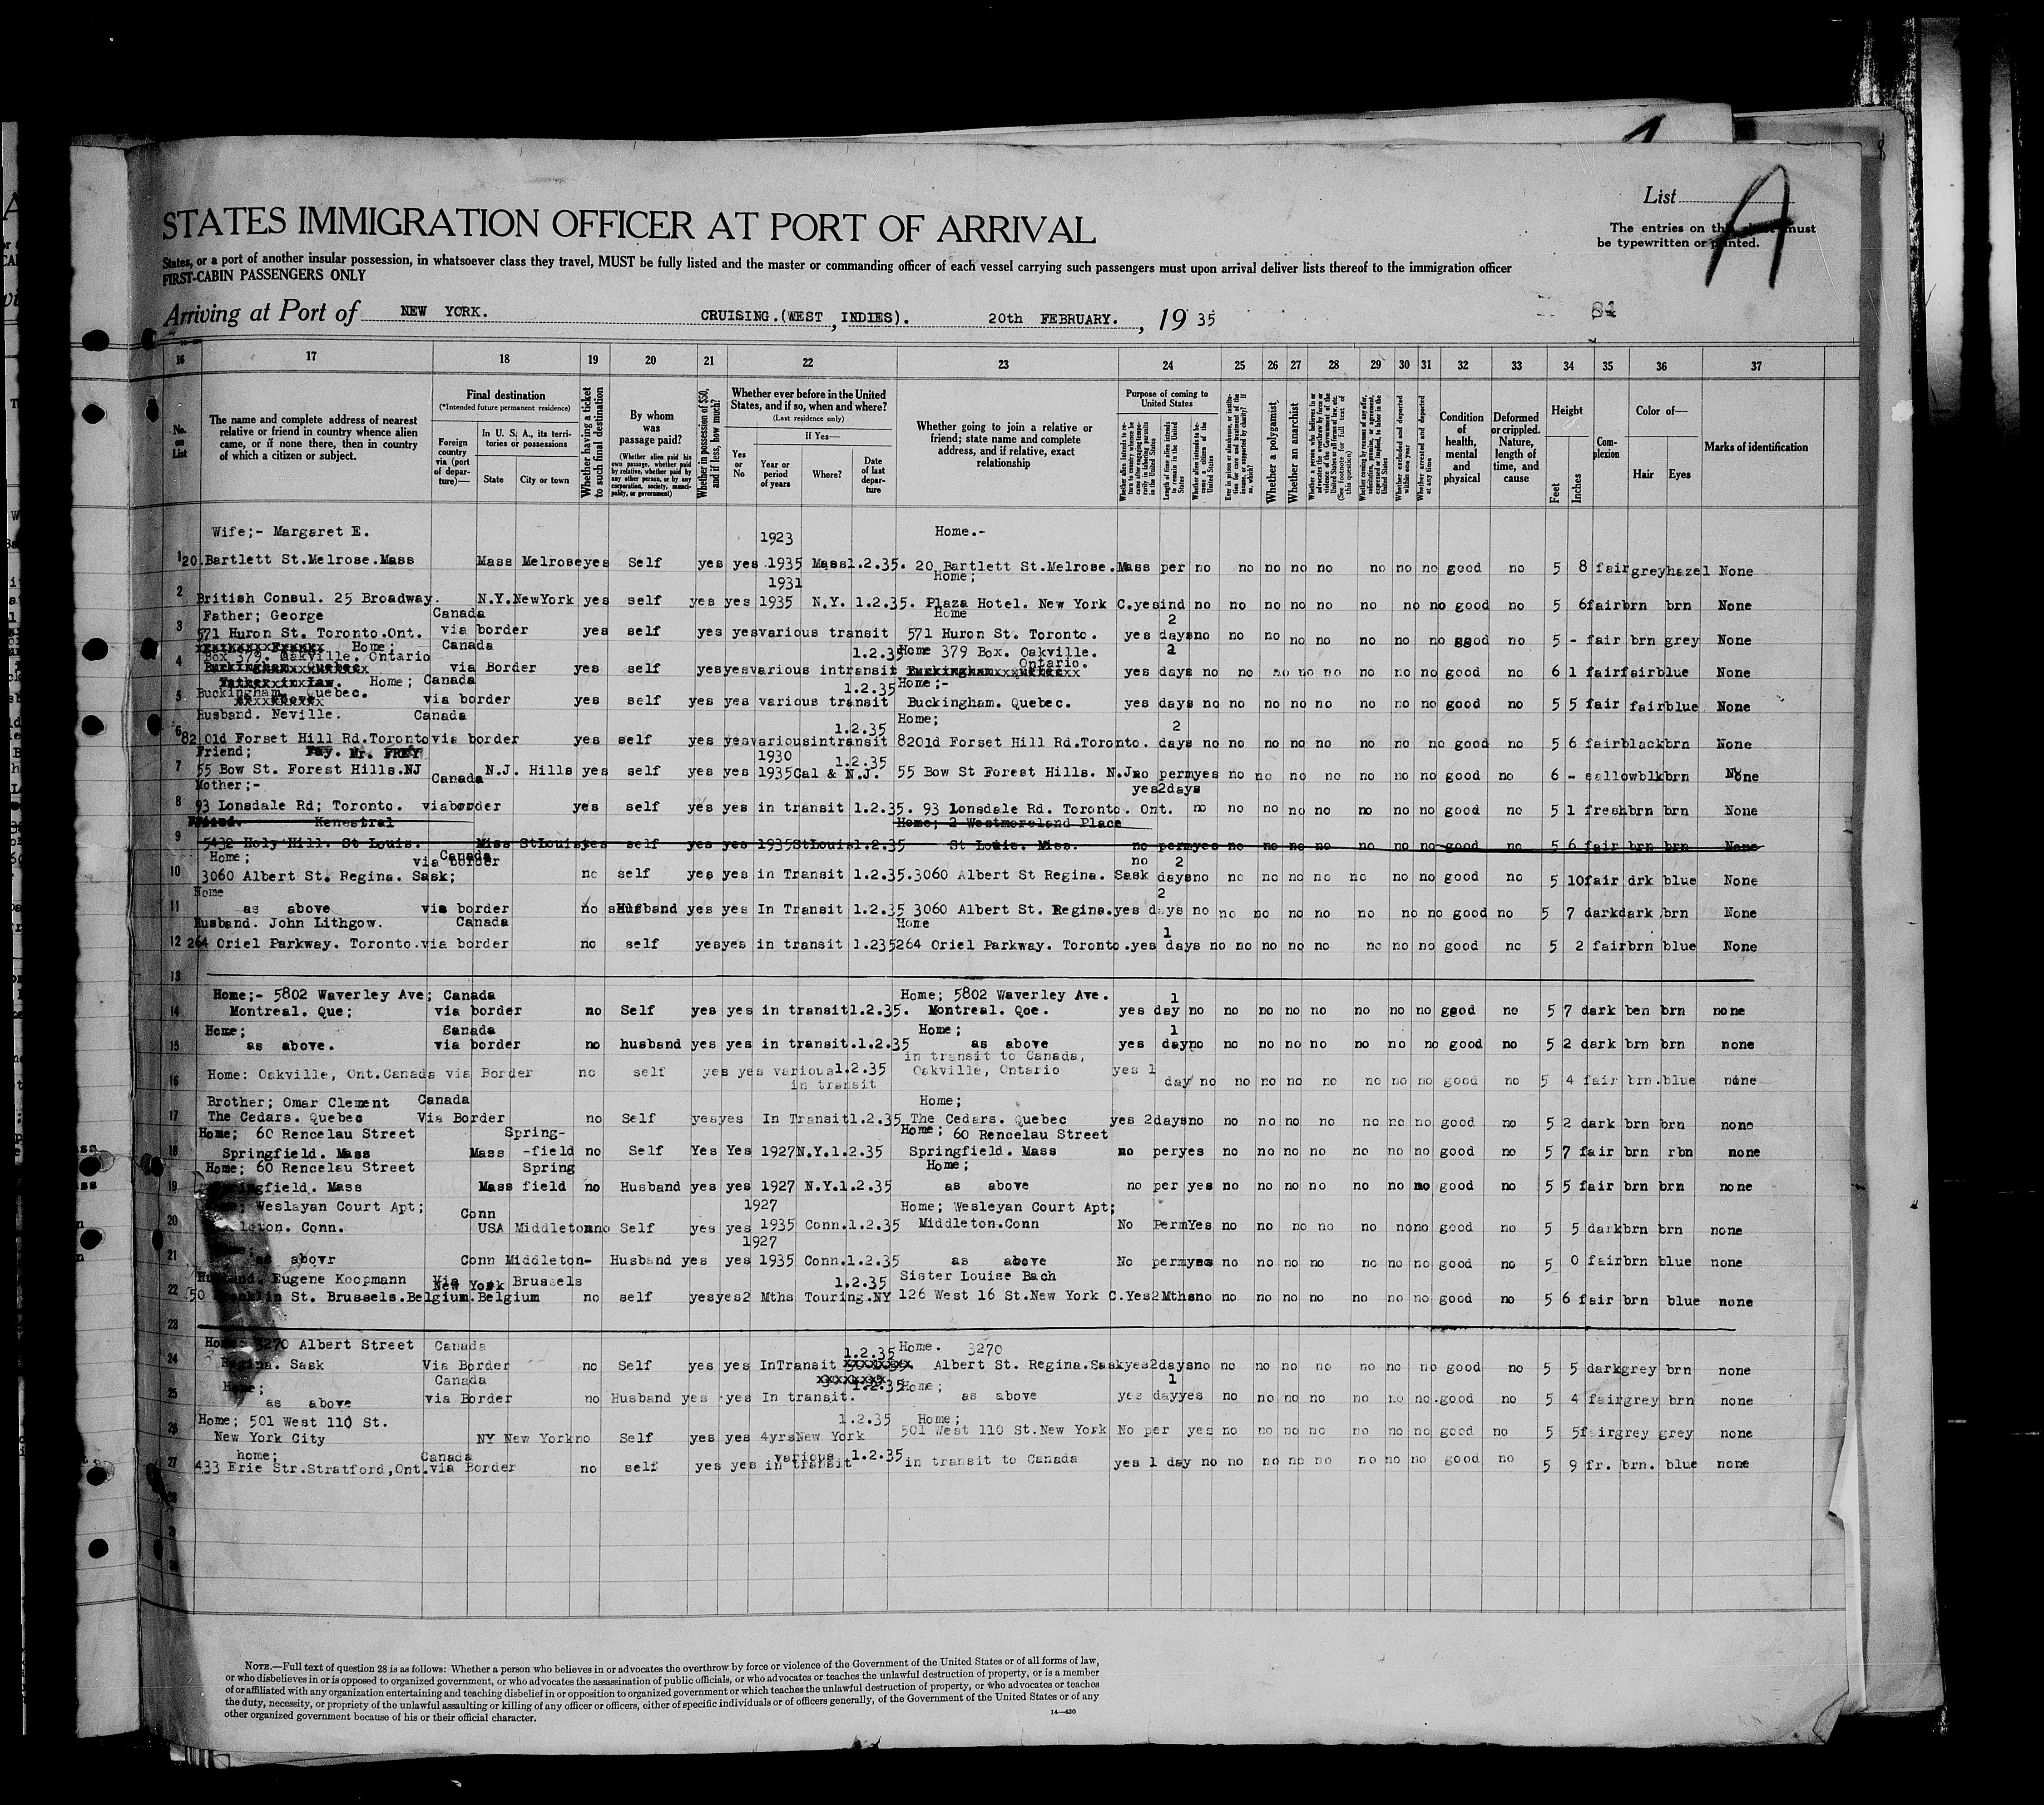 List
A
The entries on this sheet must
be typewritten or printed.
STATES IMMIGRATION OFFICER AT PORT OF ARRIVAL
States, or a port of another insular possession, in whatsoever class they travel, MUST be fully listed and the master or commanding officer of each vessel carrying such passengers must upon arrival deliver lists thereof to the immigration officer
FIRST-CABIN PASSENGERS ONLY
Arriving at Port of NEW YORK. CRUISING.(WEST, INDIES). 20th FEBRUARY. , 19 35
16 17 18 19 20 21 22 23 24 25 26 27 28 29 30 31 32 33 34 35 36 37
No. on List
The name and complete address of nearest
relative or friend in country whence alien
came, or if none there, then in country
of which a citizen or subject.
Final destination
(*Intended future permanent residence)
Foreign country via (port of departure)—
In U. S. A., its territories or possessions
State City or town
Whether having a ticket to such final destination
By whom was passage paid?
(Whether alien paid his own passage, whether paid by relative, whether paid by any other person, or by any corporation, society, municipality, or government)
Whether in possession of $50, and if less, how much?
Whether ever before in the United
States, and if so, when and where?
(Last residence only)
Yes or No
If Yes—
Year or period of years
Where?
Date of last departure
Whether going to join a relative or
friend; state name and complete
address, and if relative, exact
relationship
Purpose of coming to United States
Whether a polygamist
Whether an anarchist
Condition of health, mental and physical
Deformed or crippled. Nature, length of time, and cause
Height
Feet Inches
Complexion
Color of—
Hair Eyes
Marks of identification
Wife;- Margaret E. 1923 Home.-
1 20.Bartlett St.Melrose.Mass Mass Melrose yes Self yes yes 1935 Mass 1.2.35. 20 Bartlett St.Melrose.Mass per no no no no no no no no good no 5 8 fair grey hazel None
1931 Home;
2 British Consul. 25 Broadway. N.Y. NewYork yes self yes yes 1935 N.Y. 1.2.35. Plaza Hotel. New York C. yes ind no no no no no no no no good no 5 6 fair brn brn None
Father; George Canada Home 2
3 571 Huron St. Toronto.Ont. via border yes self yes yes various transit 571 Huron St. Toronto. yes days no no no no no no no no good no 5 - fair brn grey None
Home; Canada
Box 379. Oakville. Ontario 1.2.35 Home 379 Box. Oakville. 2
Ontario.
4 via Border yes self yes yes various intransit yes days no no no no no no no no good no 6 1 fair fair blue None
Home; Canada
5 Buckingham. Quebec. via border yes self yes yes various transit 1.2.35 Home;- Buckingham. Quebec. yes days no no no no no no no no good no 5 5 fair fair blue None
Husband. Neville. Canada 1.2.35 Home; 2
6 82 Old Forset Hill Rd.Toronto via border yes self yes yes various intransit 82Old Forset Hill Rd.Toronto. days no no no no no no no no good no 5 6 fair black brn None
Friend; Mr. FREY 1930 1.2.35
7 55 Bow St. Forest Hills.NJ N.J. Hills yes self yes yes 1935 Cal & N.J. 55 Bow St Forest Hills. N.J. no perm yes no no no no no no no good no 6 - sallow blk brn None
Mother;- Canada yes 2days
8 93 Lonsdale Rd; Toronto. via border yes self yes yes in transit 1.2.35. 93 Lonsdale Rd. Toronto. Ont. no no no no no no no no good no 5 1 fresh brn brn None
Friend. Kenestral Home; 2 Westmoreland Place
9 5432 Holy Hill. St Louis. Miss StLouis yes self yes yes 1935 StLouis 1.2.35 St Louis. Miss. no perm yes no no no no no no no good no 5 6 fair brn brn None
Home; Canada via border no 2
10 3060 Albert St. Regina. Sask; no self yes yes in Transit 1.2.35. 3060 Albert St Regina. Sask days no no no no no no no no good no 5 10 fair drk blue None
Home 2
11 as above via border no Husband yes yes In Transit 1.2.35 3060 Albert St. Regina. yes days no no no no no no no no good no 5 7 dark dark brn None
Husband. John Lithgow. Canada Home 1
12 264 Oriel Parkway. Toronto. via border no self yes yes in transit 1.235 264 Oriel Parkway. Toronto. yes days no no no no no no no no good no 5 2 fair brn blue None
13
Home;- 5802 Waverley Ave; Canada Home; 5802 Waverley Ave. 1
14 Montreal. Que; via border no Self yes yes in transit 1.2.35. Montreal. Qoe. yes day no no no no no no no no good no 5 7 dark ben brn none
Home; Canada Home; 1
15 as above. via border no husband yes yes in transit. 1.2.35 as above yes day no no no no no no no no good no 5 2 dark brn brn none
in transit to Canada,
16 Home: Oakville, Ont.Canada via Border no self yes yes various 1.2.35 in transit Oakville, Ontario yes 1 day no no no no no no no no good no 5 4 fair brn. blue none
Brother; Omar Clement Canada Home;
17 The Cedars. Quebec Via Border no Self yes yes In Transit 1.2.35 The Cedars. Quebec yes 2days no no no no no no no no good no 5 2 dark brn brn none
Home; 60 Rencelau Street Spring- Home; 60 Rencelau Street
18 Springfield. Mass Mass -field no Self Yes Yes 1927 N.Y. 1.2.35 Springfield. Mass no per yes no no no no no no no good no 5 7 fair brn rbn none
Home; 60 Rencelau Street Spring Home;
19 Springfield. Mass Mass field no Husband yes yes 1927 N.Y. 1.2.35 as above no per yes no no no no no no no good no 5 5 fair brn brn none
Weslayan Court Apt; Conn 1927 Home; Wesleyan Court Apt;
20 Conn. USA Middleton no Self yes yes 1935 Conn. 1.2.35 Middleton.Conn No Perm Yes no no no no no no no good no 5 5 dark brn brn none
1927
21 as abovr Conn Middleton- Husband yes yes 1935 Conn. 1.2.35 as above No perm yes no no no no no no no good no 5 0 fair brn blue none
Husband. Eugene Koopmann Via New York Brussels 1.2.35 Sister Louise Bach
22 50 Franklin St. Brussels.Belgium. Belgium no self yes yes 2 Mths Touring.NY 126 West 16 St.New York C. Yes 2Mths no no no no no no no no good no 5 6 fair brn blue none
23
Home; 3270 Albert Street Canada 1.2.35 Home. 3270
24 Regina. Sask Via Border no Self yes yes InTransit Albert St. Regina.Sask yes 2days no no no no no no no no good no 5 5 dark grey brn none
Home; Canada 1.2.35 Home; 1
25 as above via Border no Husband yes yes In transit. as above yes day yes no no no no no no no good no 5 4 fair grey brn none
Home; 501 West 110 St. 1.2.35 Home;
26 New York City NY New York no Self yes yes 4yrs New York 501 West 110 St.New York No per yes no no no no no no no good no 5 5 fair grey grey none
home; Canada various 1.2.35
27 433 Erie Str.Stratford,Ont. via Border no self yes yes in transit in transit to Canada yes 1 day no no no no no no no no good no 5 9 fr. brn. blue none
28
29
30
NOTE.—Full text of question 28 is as follows: Whether a person who believes in or advocates the overthrow by force or violence of the Government of the United States or of all forms of law,
or who disbelieves in or is opposed to organized government, or who advocates the assassination of public officials, or who advocates or teaches the unlawful destruction of property, or is a member
of or affiliated with any organization entertaining and teaching disbelief in or opposition to organized government or which teaches the unlawful destruction of property, or who advocates or teaches
the duty, necessity, or propriety of the unlawful assaulting or killing of any officer or officers, either of specific individuals or of officers generally, of the Government of the United States or of any
other organized government because of his or their official character.
14—430